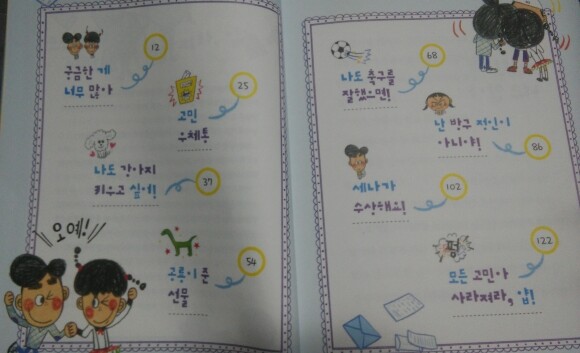 12
궁금한 게
너무 많아
25
고민
우체통
나도 강아지
키우고 싶어!
37
오예!
54
공룡이 준
선물
68
나도 축구를
잘했으면!
난 방구 적인이
아니야!
86
세나가
수상해요!
102
펑
122
모든 고민아
사라져라, 얍!